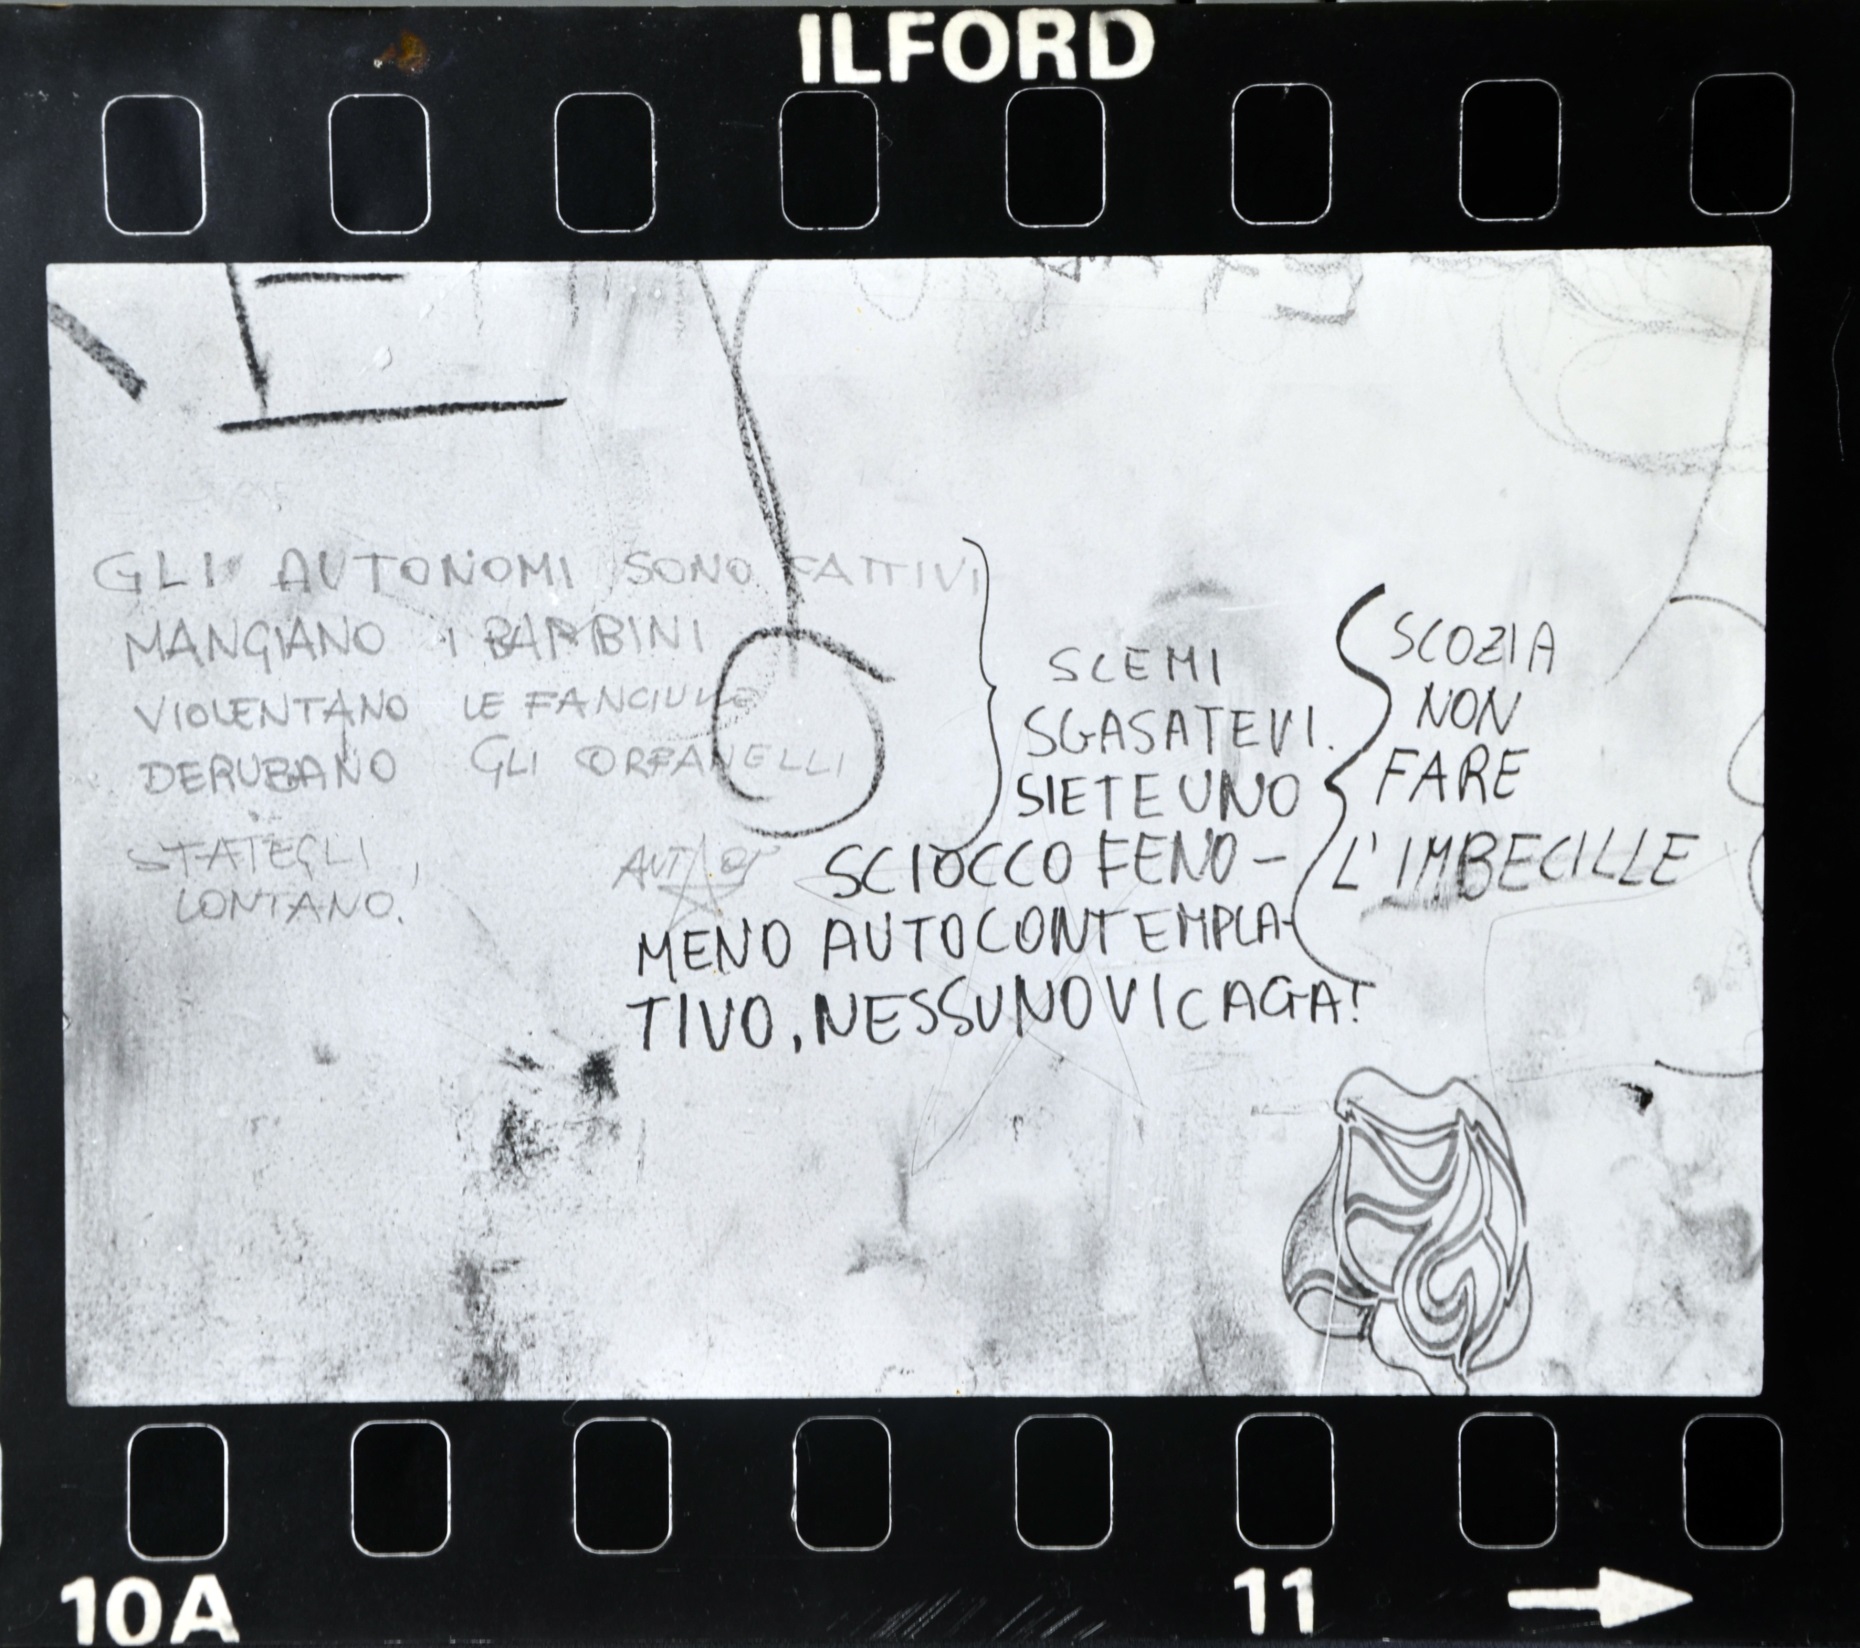 ILFORD
GLI AUTONOMI SONO FATTIVI
MANGIANO I BAMBINI
VIOLENTANO LE FANCIULLE
DERUBANO GLI ORFANELLI
STATEGLI
LONTANO.
SCEMI
SGASATEVI.
SIETE UNO
SCIOCCO FENO-
MENO AUTOCONTEMPLA-
TIVO, NESSUNO VI CAGA!
SCOZIA
NON
FARE
L'IMBECILLE
10A
11